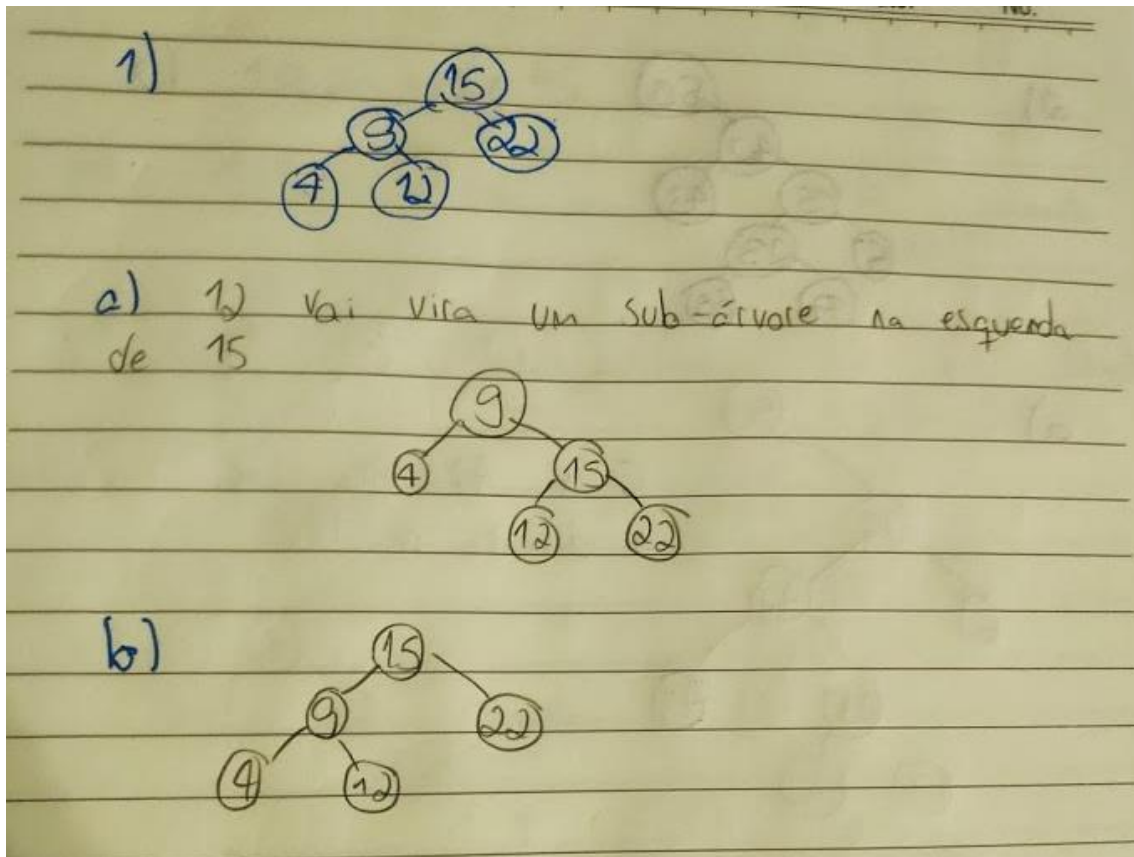 No.
1)
15
9 22
4 12
a) 12 vai vira um sub-árvore na esquerda
de 15
9
4 15
12 22
b) 15
9 22
4 12